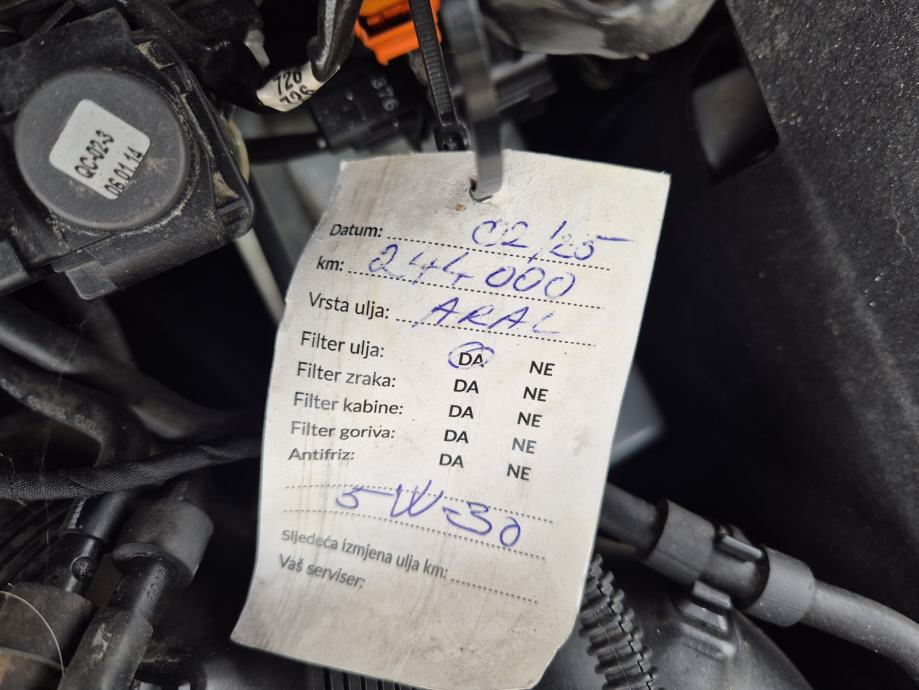 726
726
976
QC-02-3
06.01.14
Datum: 02/25
km: 244000
Vrsta ulja: ARAL
Filter ulja: DA NE
Filter zraka: DA NE
Filter kabine: DA NE
Filter goriva: DA NE
Antifriz: DA NE
5W-30
Sljedeća izmjena ulja km:
Vaš serviser: